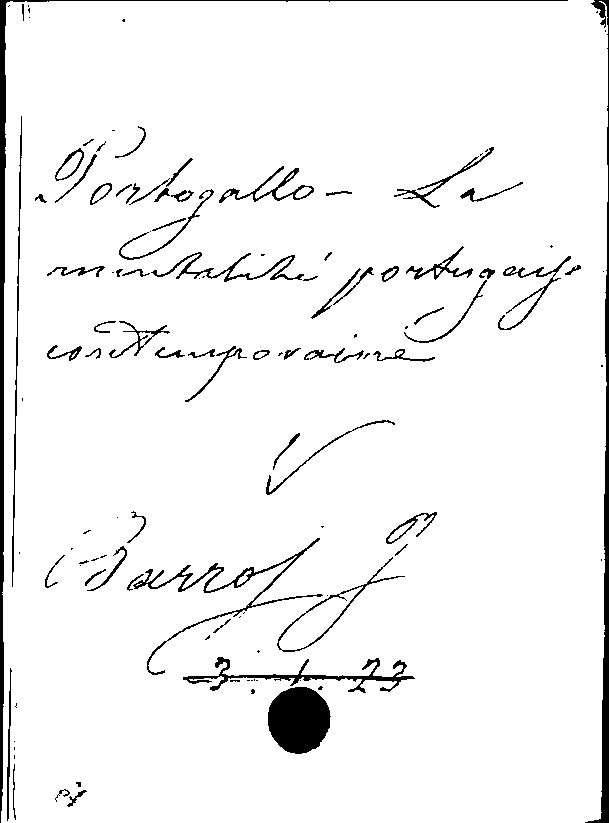 Portogallo - La
mentalité portugaise
contemporaine
V
Barros J
3.1.23